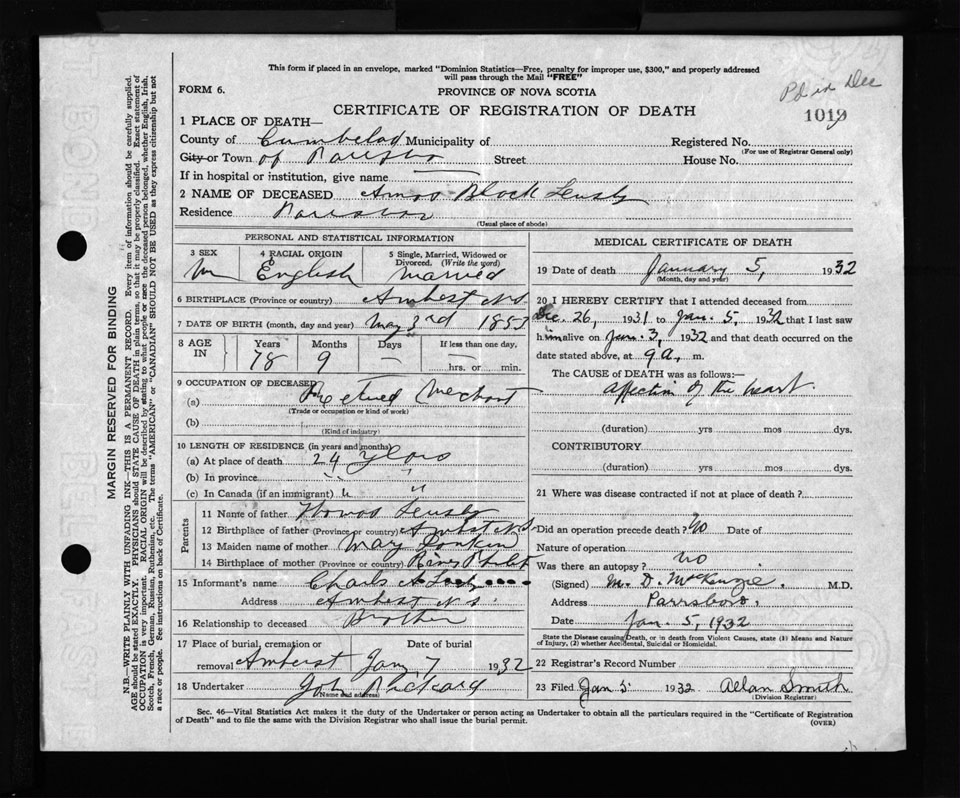 This form if placed in an envelope, marked "Dominion Statistics—Free, penalty for improper use, $300," and properly addressed
will pass through the Mail "FREE"
FORM 6.
PROVINCE OF NOVA SCOTIA
Pd in Dec
CERTIFICATE OF REGISTRATION OF DEATH
1019
1 PLACE OF DEATH—
County of Municipality of Registered No.
(For use of Registrar General only)
City or Town of Street House No.
If in hospital or institution, give name
2 NAME OF DECEASED Amos Black
Residence
(Usual place of abode)
PERSONAL AND STATISTICAL INFORMATION
3 SEX 4 RACIAL ORIGIN 5 Single, Married, Widowed or
Divorced. (Write the word)
M English Married
6 BIRTHPLACE (Province or country) Amherst N.S.
7 DATE OF BIRTH (month, day and year) May 3rd 1853
8 AGE IN Years Months Days If less than one day,
78 9 — hrs. or min.
9 OCCUPATION OF DECEASED
(a) Retired Merchant
(Trade or occupation or kind of work)
(b)
(Kind of industry)
10 LENGTH OF RESIDENCE (in years and months)
(a) At place of death 24 years
(b) In province " "
(c) In Canada (if an immigrant) " "
Parents
11 Name of father Thomas
12 Birthplace of father (Province or country) Amherst N.S
13 Maiden name of mother May
14 Birthplace of mother (Province or country) River Philip
15 Informant's name Charles A
Address Amherst N.S.
16 Relationship to deceased Brother
17 Place of burial, cremation or Date of burial
removal Amherst Jan 7 1932
18 Undertaker
(Name and address)
MEDICAL CERTIFICATE OF DEATH
19 Date of death January 5, 1932
(Month, day and year)
20 I HEREBY CERTIFY that I attended deceased from
Dec. 26, 1931 to Jan. 5, 1932 that I last saw
him alive on Jan. 3, 1932 and that death occurred on the
date stated above, at 9 a. m.
The CAUSE OF DEATH was as follows:
affection of the heart.
(duration) yrs mos dys.
CONTRIBUTORY
(duration) yrs mos dys.
21 Where was disease contracted if not at place of death?
Did an operation precede death? No Date of
Nature of operation
Was there an autopsy? no
(Signed) M. D. McKenzie. M.D.
Address Parrsboro.
Date Jan. 5, 1932
State the Disease causing Death, or in death from Violent Causes, state (1) Means and Nature
of Injury, (2) whether Accidental, Suicidal or Homicidal.
22 Registrar's Record Number
23 Filed Jan 5 1932 Allan Smith
(Division Registrar)
Sec. 46—Vital Statistics Act makes it the duty of the Undertaker or person acting as Undertaker to obtain all the particulars required in the "Certificate of Registration
of Death" and to file the same with the Division Registrar who shall issue the burial permit.
(OVER)
MARGIN RESERVED FOR BINDING
N.B.—WRITE PLAINLY WITH UNFADING INK—THIS IS A PERMANENT RECORD. Every item of information should be carefully supplied.
AGE should be stated EXACTLY. PHYSICIANS should STATE CAUSE OF DEATH in plain terms, so that it may be properly classified. Exact statement of
OCCUPATION is very important. RACIAL ORIGIN will be described by stating to what people or race the deceased person belonged, whether English, Irish,
Scotch, French, German, Russian, Ruthenian, etc. The terms "AMERICAN" or "CANADIAN" SHOULD NOT BE USED as they express citizenship but not
a race or people. See instructions on back of Certificate.